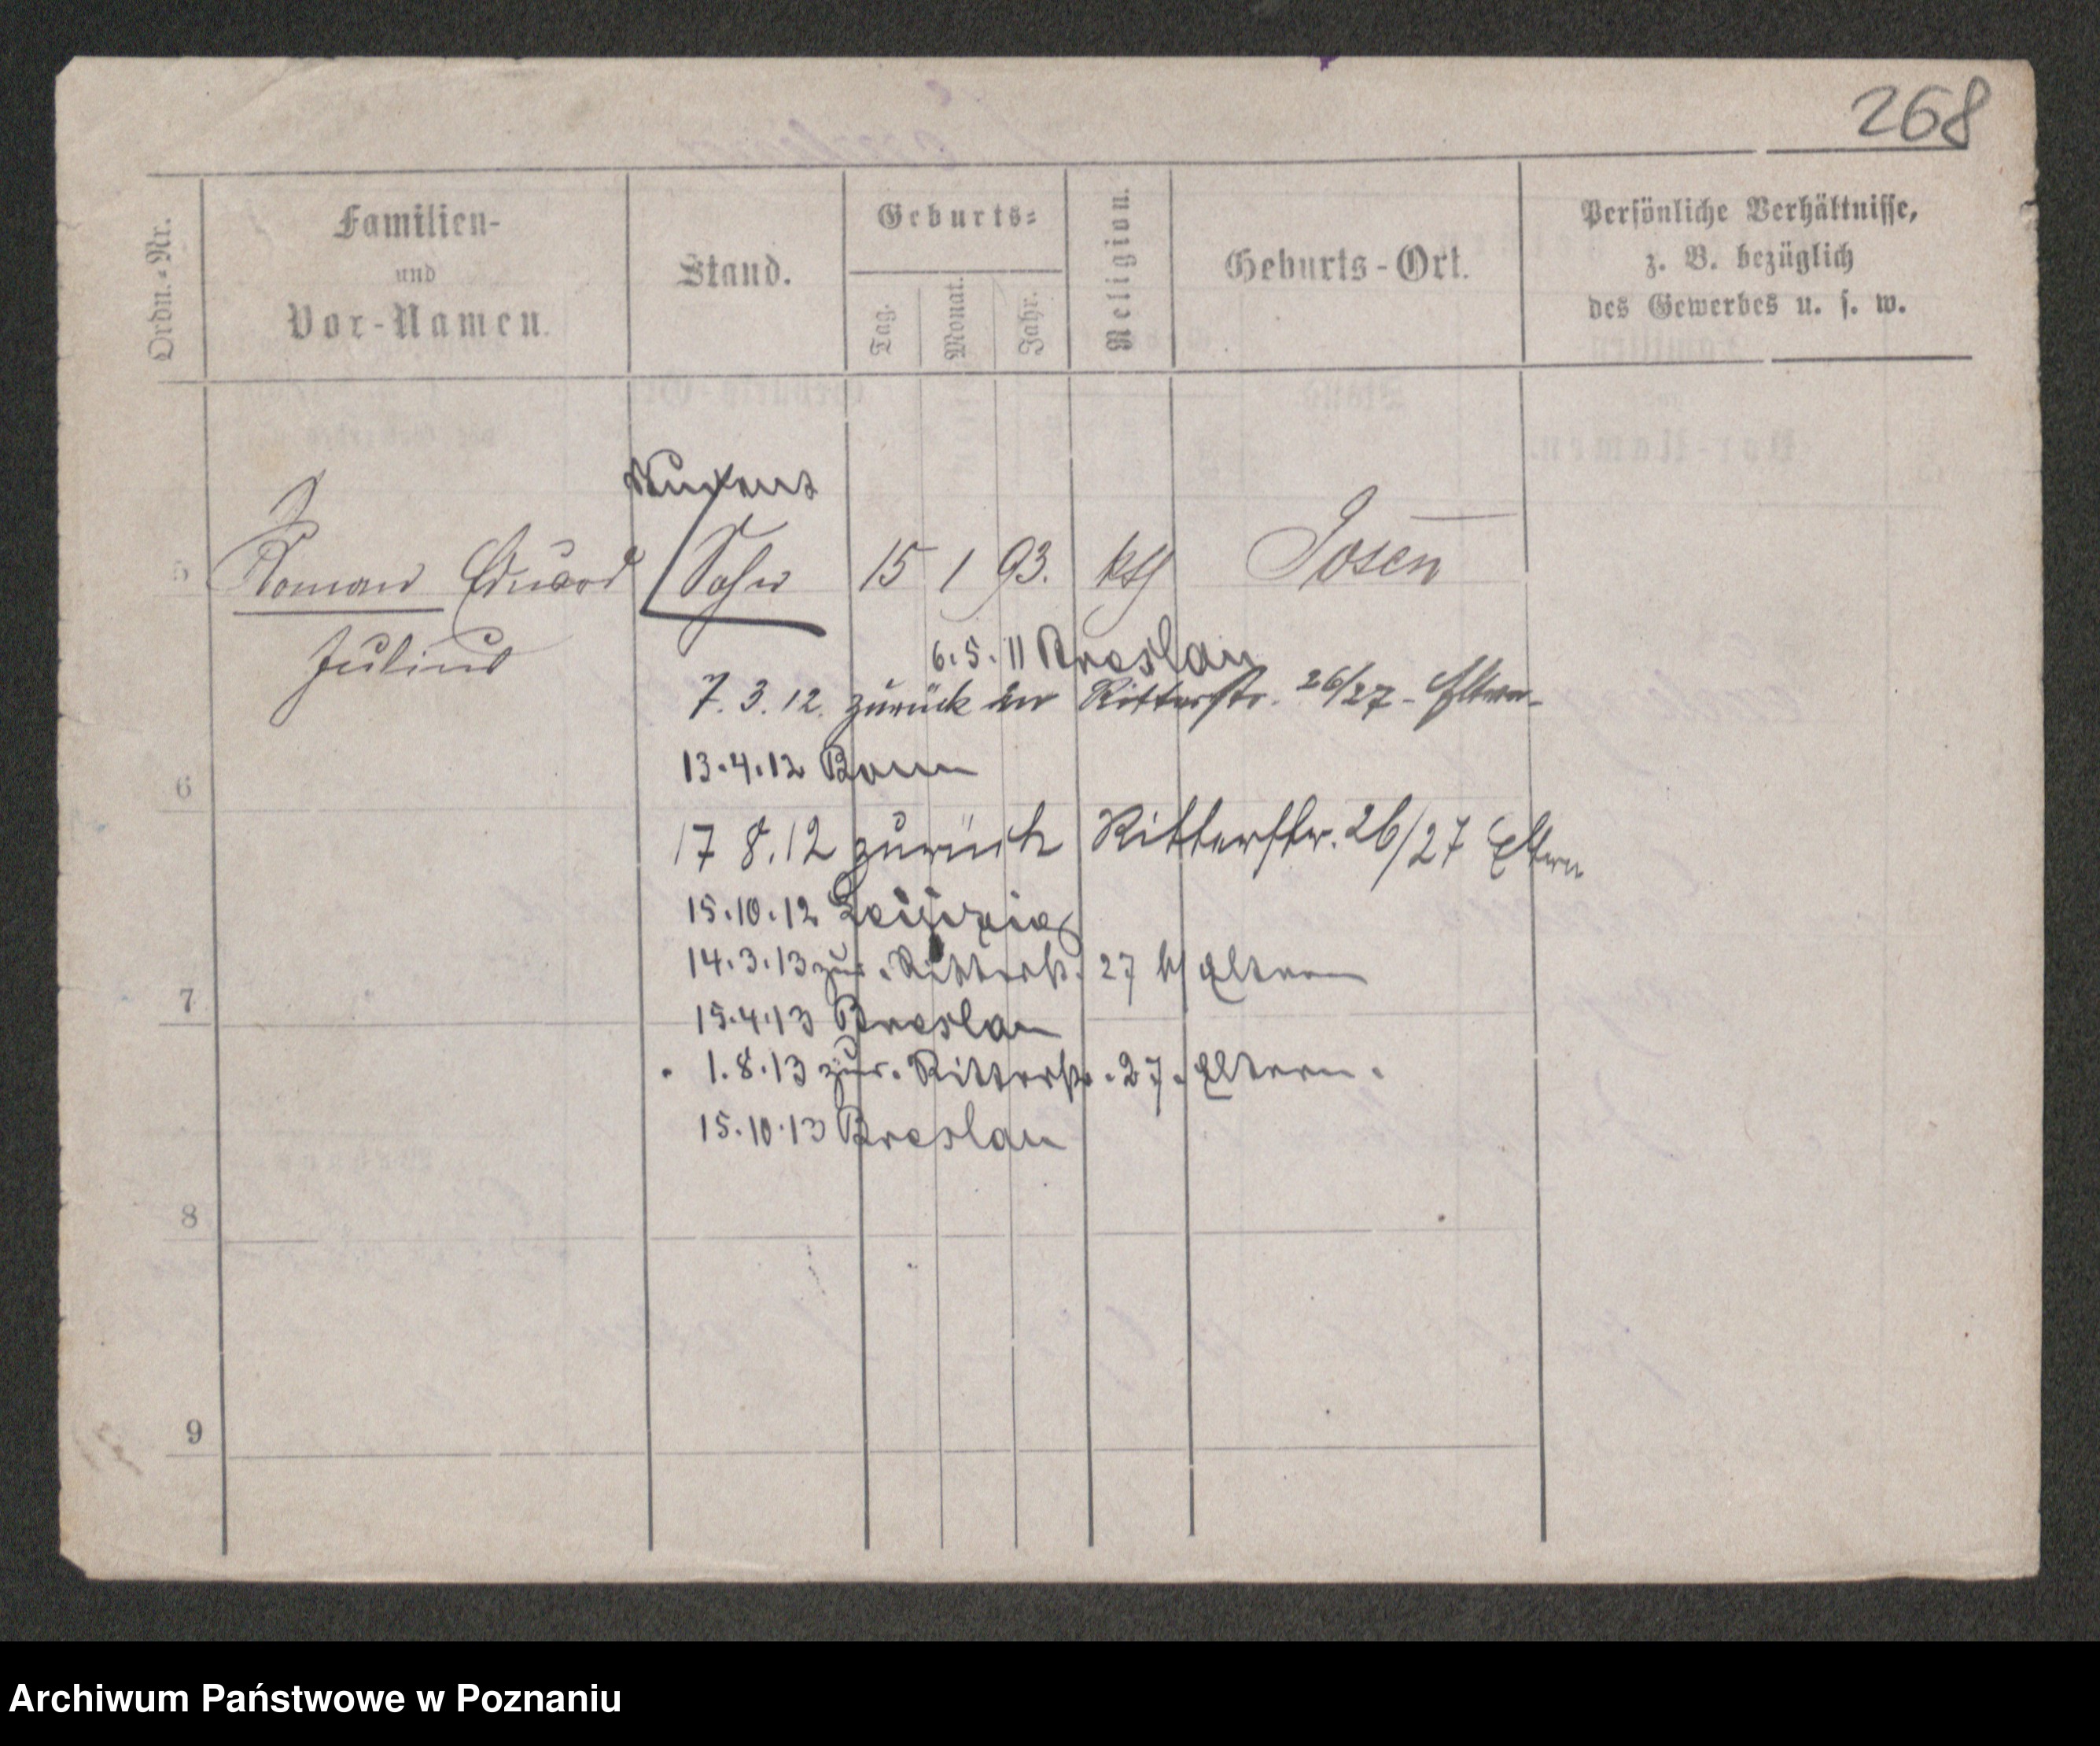 268
Ordn.-Nr.
Familien-
und
Vor-Namen.
Stand.
Geburts-
Tag.
Monat.
Jahr.
Religion.
Geburts-Ort.
Persönliche Verhältnisse,
z. B. bezüglich
des Gewerbes u. s. w.
Student
5 Roman Eduard Sohn 15 1 93. kth Posen
Julius
6.5.11 Breslau
7.3.12. zurück in Ritterstr. 26/27 - Eltern
13.4.12 Bonn
6
17 8.12 zurück Ritterstr. 26/27 Eltern
15.10.12 Leipzig
14.3.13 zur. Ritterstr. 27 b/ Eltern
7
15.4.13 Breslau
1.8.13 zur. Ritterstr. 27. Eltern.
15.10.13 Breslau
8
9
Archiwum Państwowe w Poznaniu